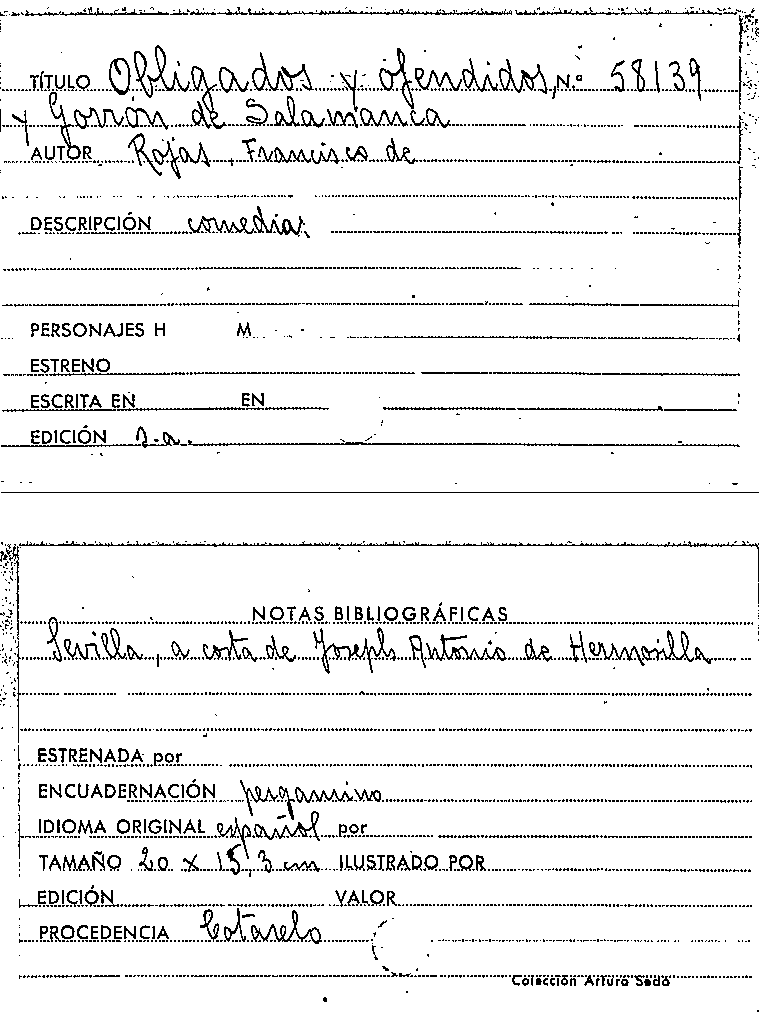 TÍTULO Obligados y ofendidos, N.º 58139
y Gorrón de Salamanca
AUTOR Rojas, Francisco de
DESCRIPCIÓN comedia
PERSONAJES H M
ESTRENO
ESCRITA EN EN
EDICIÓN s.a.
NOTAS BIBLIOGRÁFICAS
Sevilla, a costa de Joseph Antonio de Hermosilla
ESTRENADA por
ENCUADERNACIÓN pergamino
IDIOMA ORIGINAL español por
TAMAÑO 20 x 15,3 cm ILUSTRADO POR
EDICIÓN VALOR
PROCEDENCIA Cotarelo
Colección Arturo Sedó